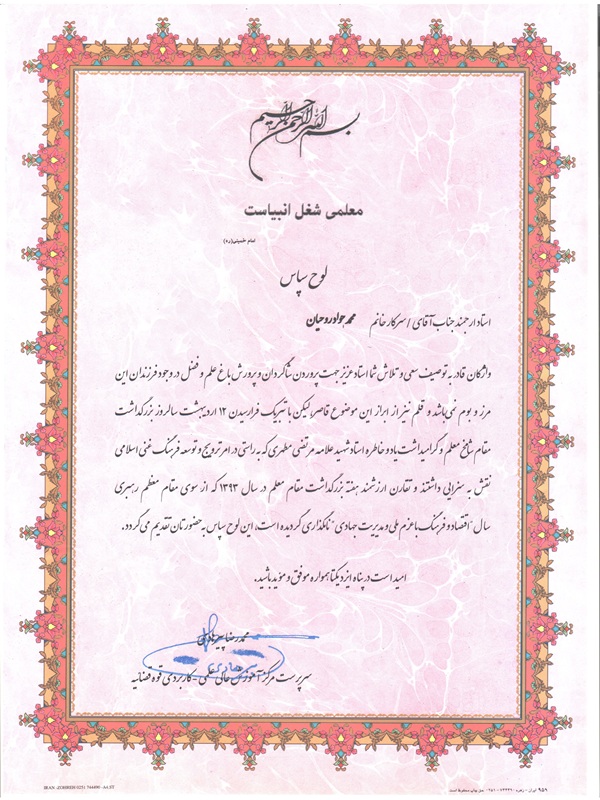 بسم الله الرحمن الرحیم
معلمی شغل انبیاست
امام خمینی(ره)
لوح سپاس
استاد ارجمند جناب آقای / سرکار خانم محمدجواد روحیان
واژگان قادر به توصیف سعی و تلاش شما استاد عزیز جهت پروردن شاگردان و پرورش باغ علم و فضل در وجود فرزندان این
مرز و بوم نمی باشد و قلم نیز از ابراز این موضوع قاصر، لیکن با تبریک فرارسیدن ۱۲ اردیبهشت سالروز بزرگداشت
مقام شامخ معلم و گرامیداشت یاد و خاطره استاد شهید علامه مرتضی مطهری که به راستی در امر ترویج و توسعه فرهنگ غنی اسلامی
نقش به سزایی داشتند و تقارن ارزشمند هفته بزرگداشت مقام معلم در سال ۱۳۹۳ که از سوی مقام معظم رهبری
سال "اقتصاد و فرهنگ با عزم ملی و مدیریت جهادی" نامگذاری گردیده است، این لوح سپاس به حضورتان تقدیم می گردد.
امید است در پناه ایزد یکتا همواره موفق و مؤید باشید.
محمدرضا پیرهادی
سرپرست مرکز آموزش عالی علمی - کاربردی قوه قضائیه
IRAN -ZOHREH 0251 744490 -A4.ST